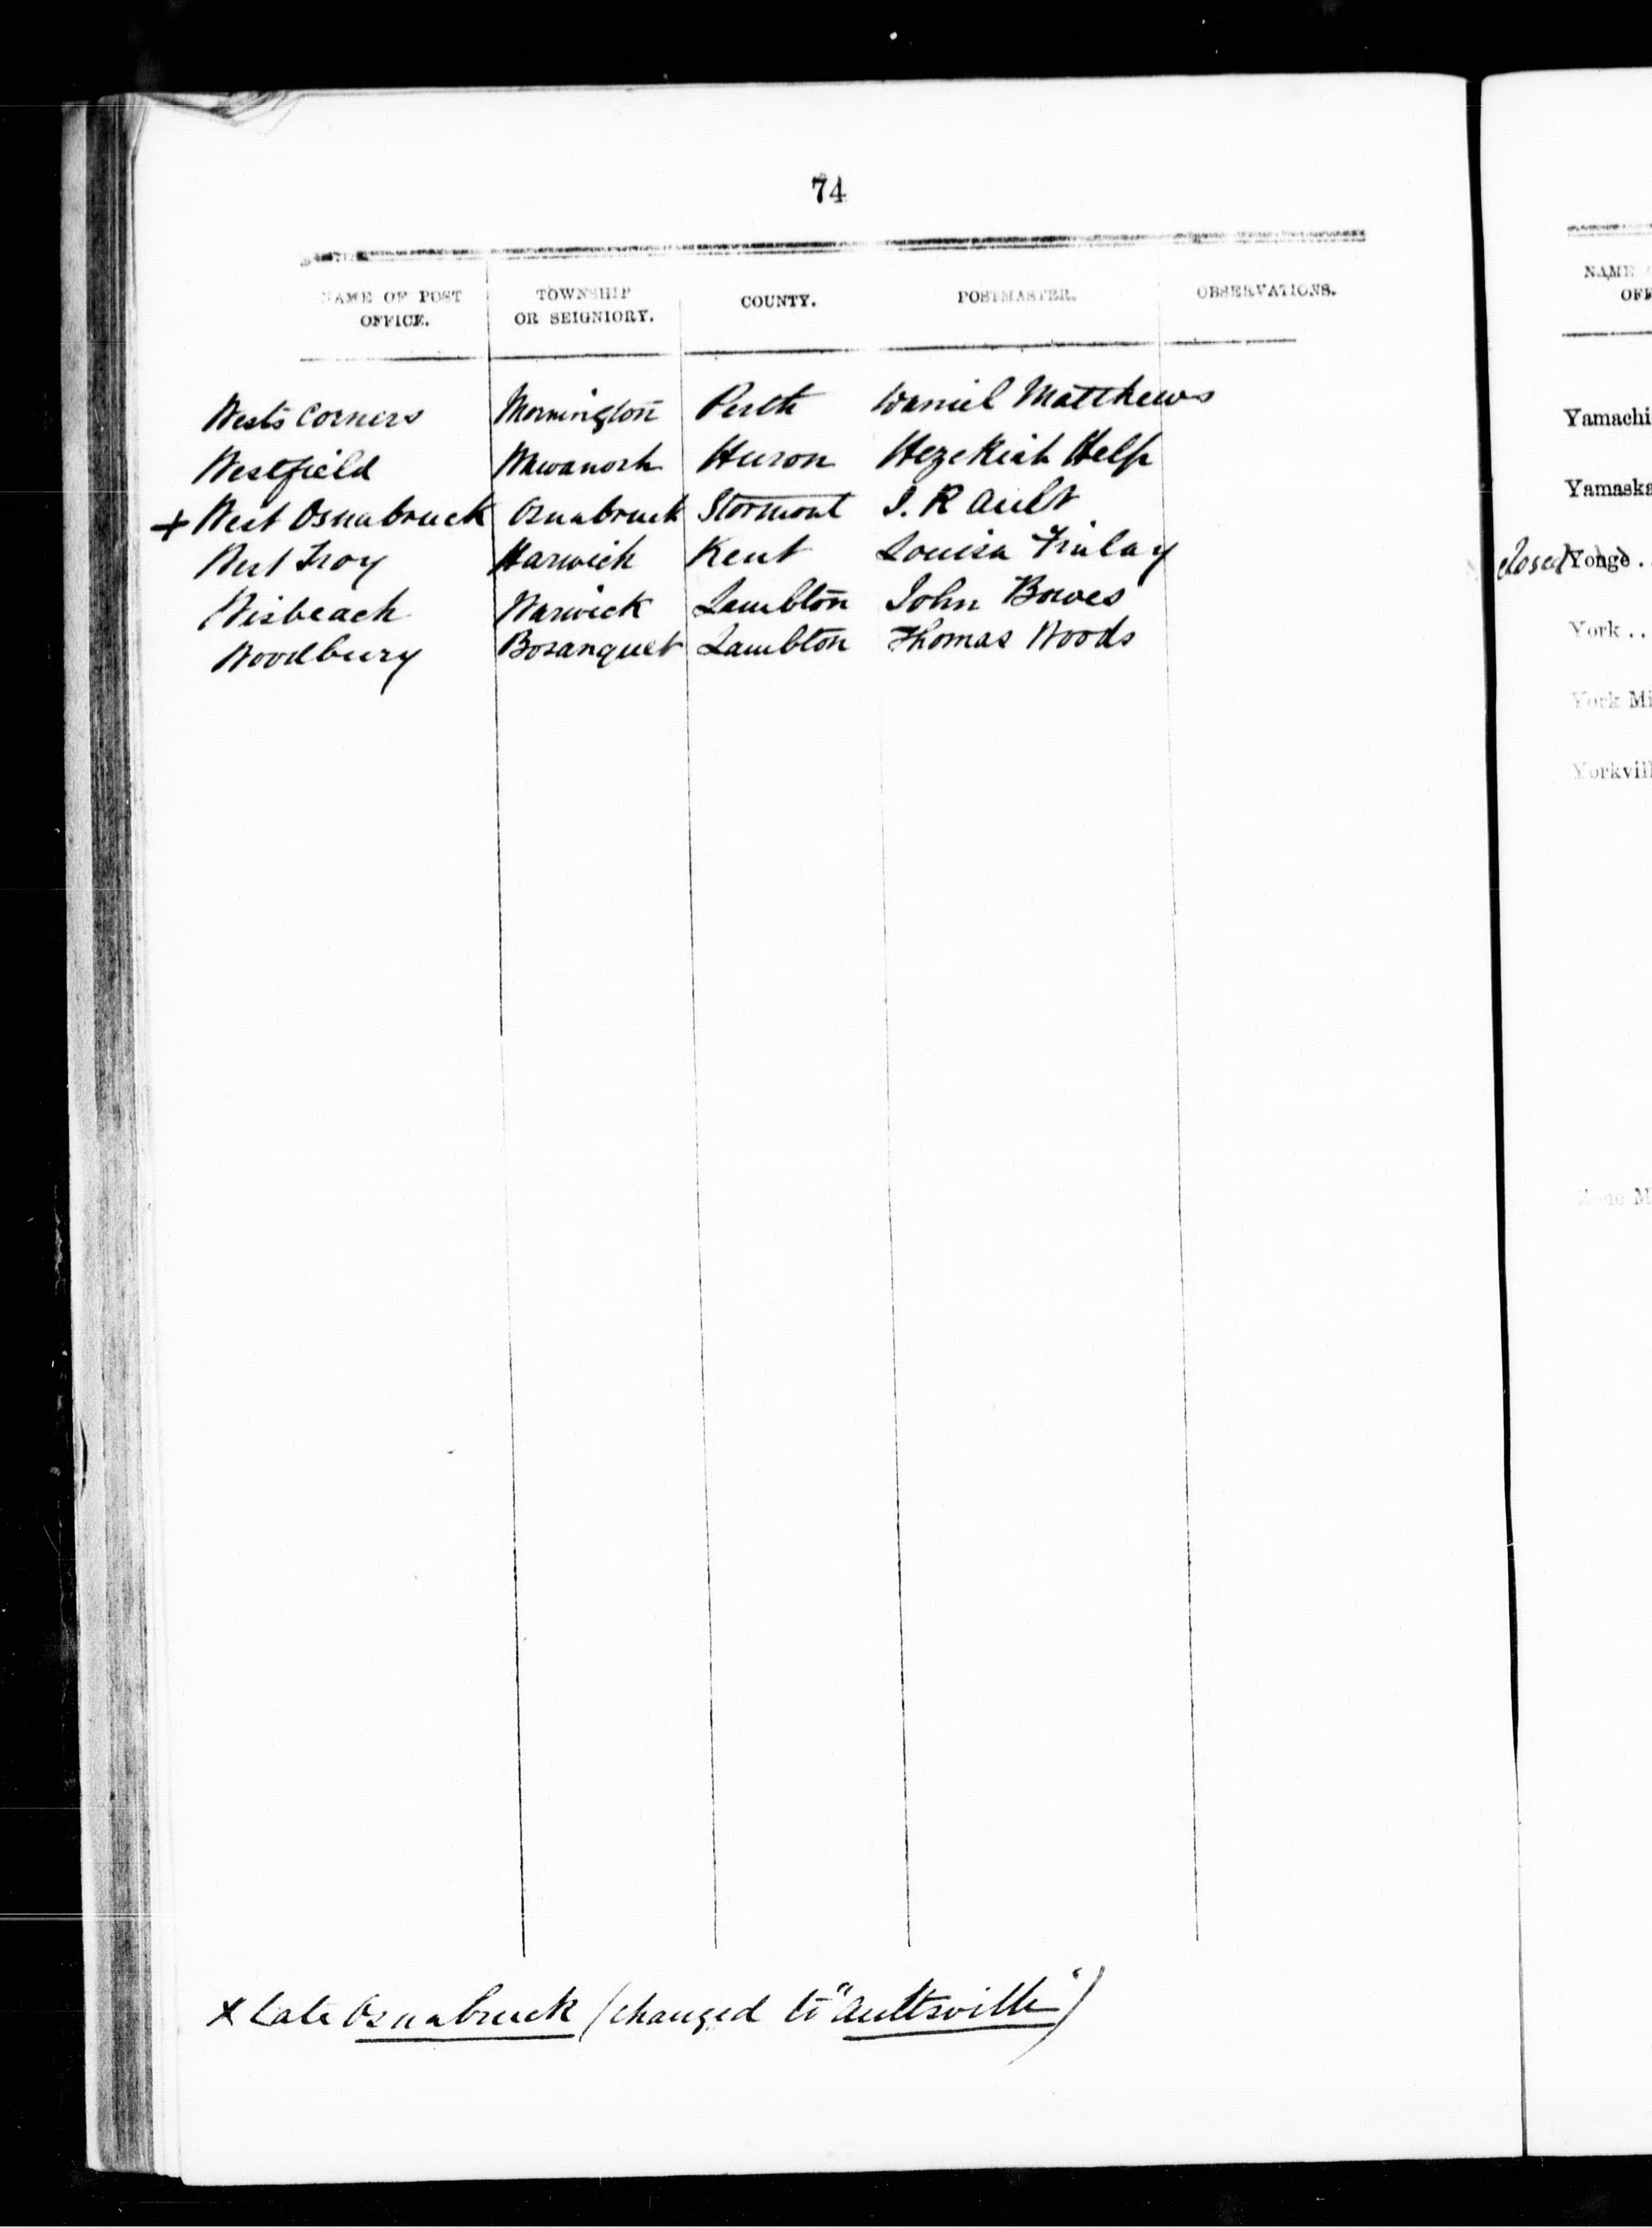 74
NAME OF POST OFFICE. TOWNSHIP OR SEIGNIORY. COUNTY. POSTMASTER. OBSERVATIONS.
West's Corners Mornington Perth Daniel Matthews
Westfield Wawanosh Huron Hezekiah Help
+ West Osnabruck Osnabruck Stormont I. R Ault
West Troy Harwich Kent Louisa Finlay
Wisbeach Warwick Lambton John Bowes
Woodbury Bosanquet Lambton Thomas Woods
x Late Osnabruck (changed to "Aultsville")
NAME
OFF
Yamachi
Yamaska
closed Yonge .
York . .
York Mi
Yorkvill